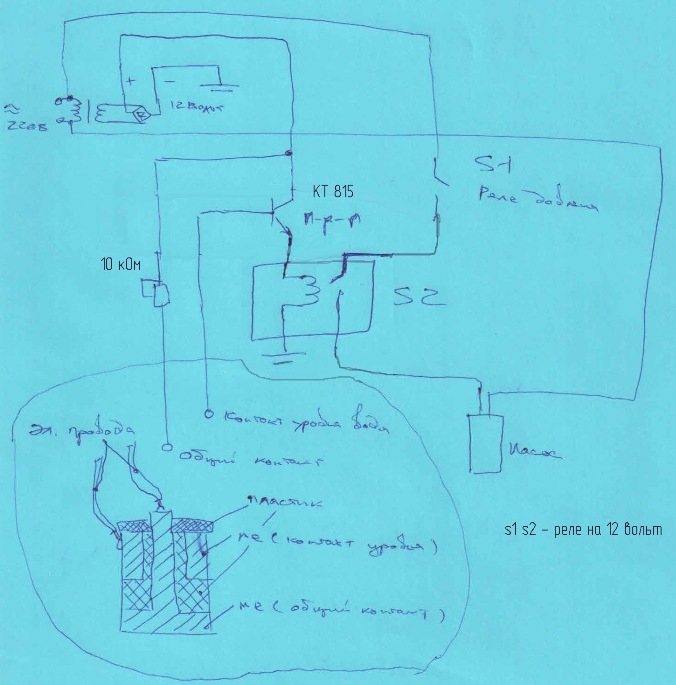 +
−
12 Вольт
≈
220В
S1
Реле давления
КТ 815
n-p-n
10 кОм
S2
Контакт уровня воды
Эл. провода
Общий контакт
Насос
пластик
ме (контакт уровня)
ме (общий контакт)
s1 s2 - реле на 12 вольт